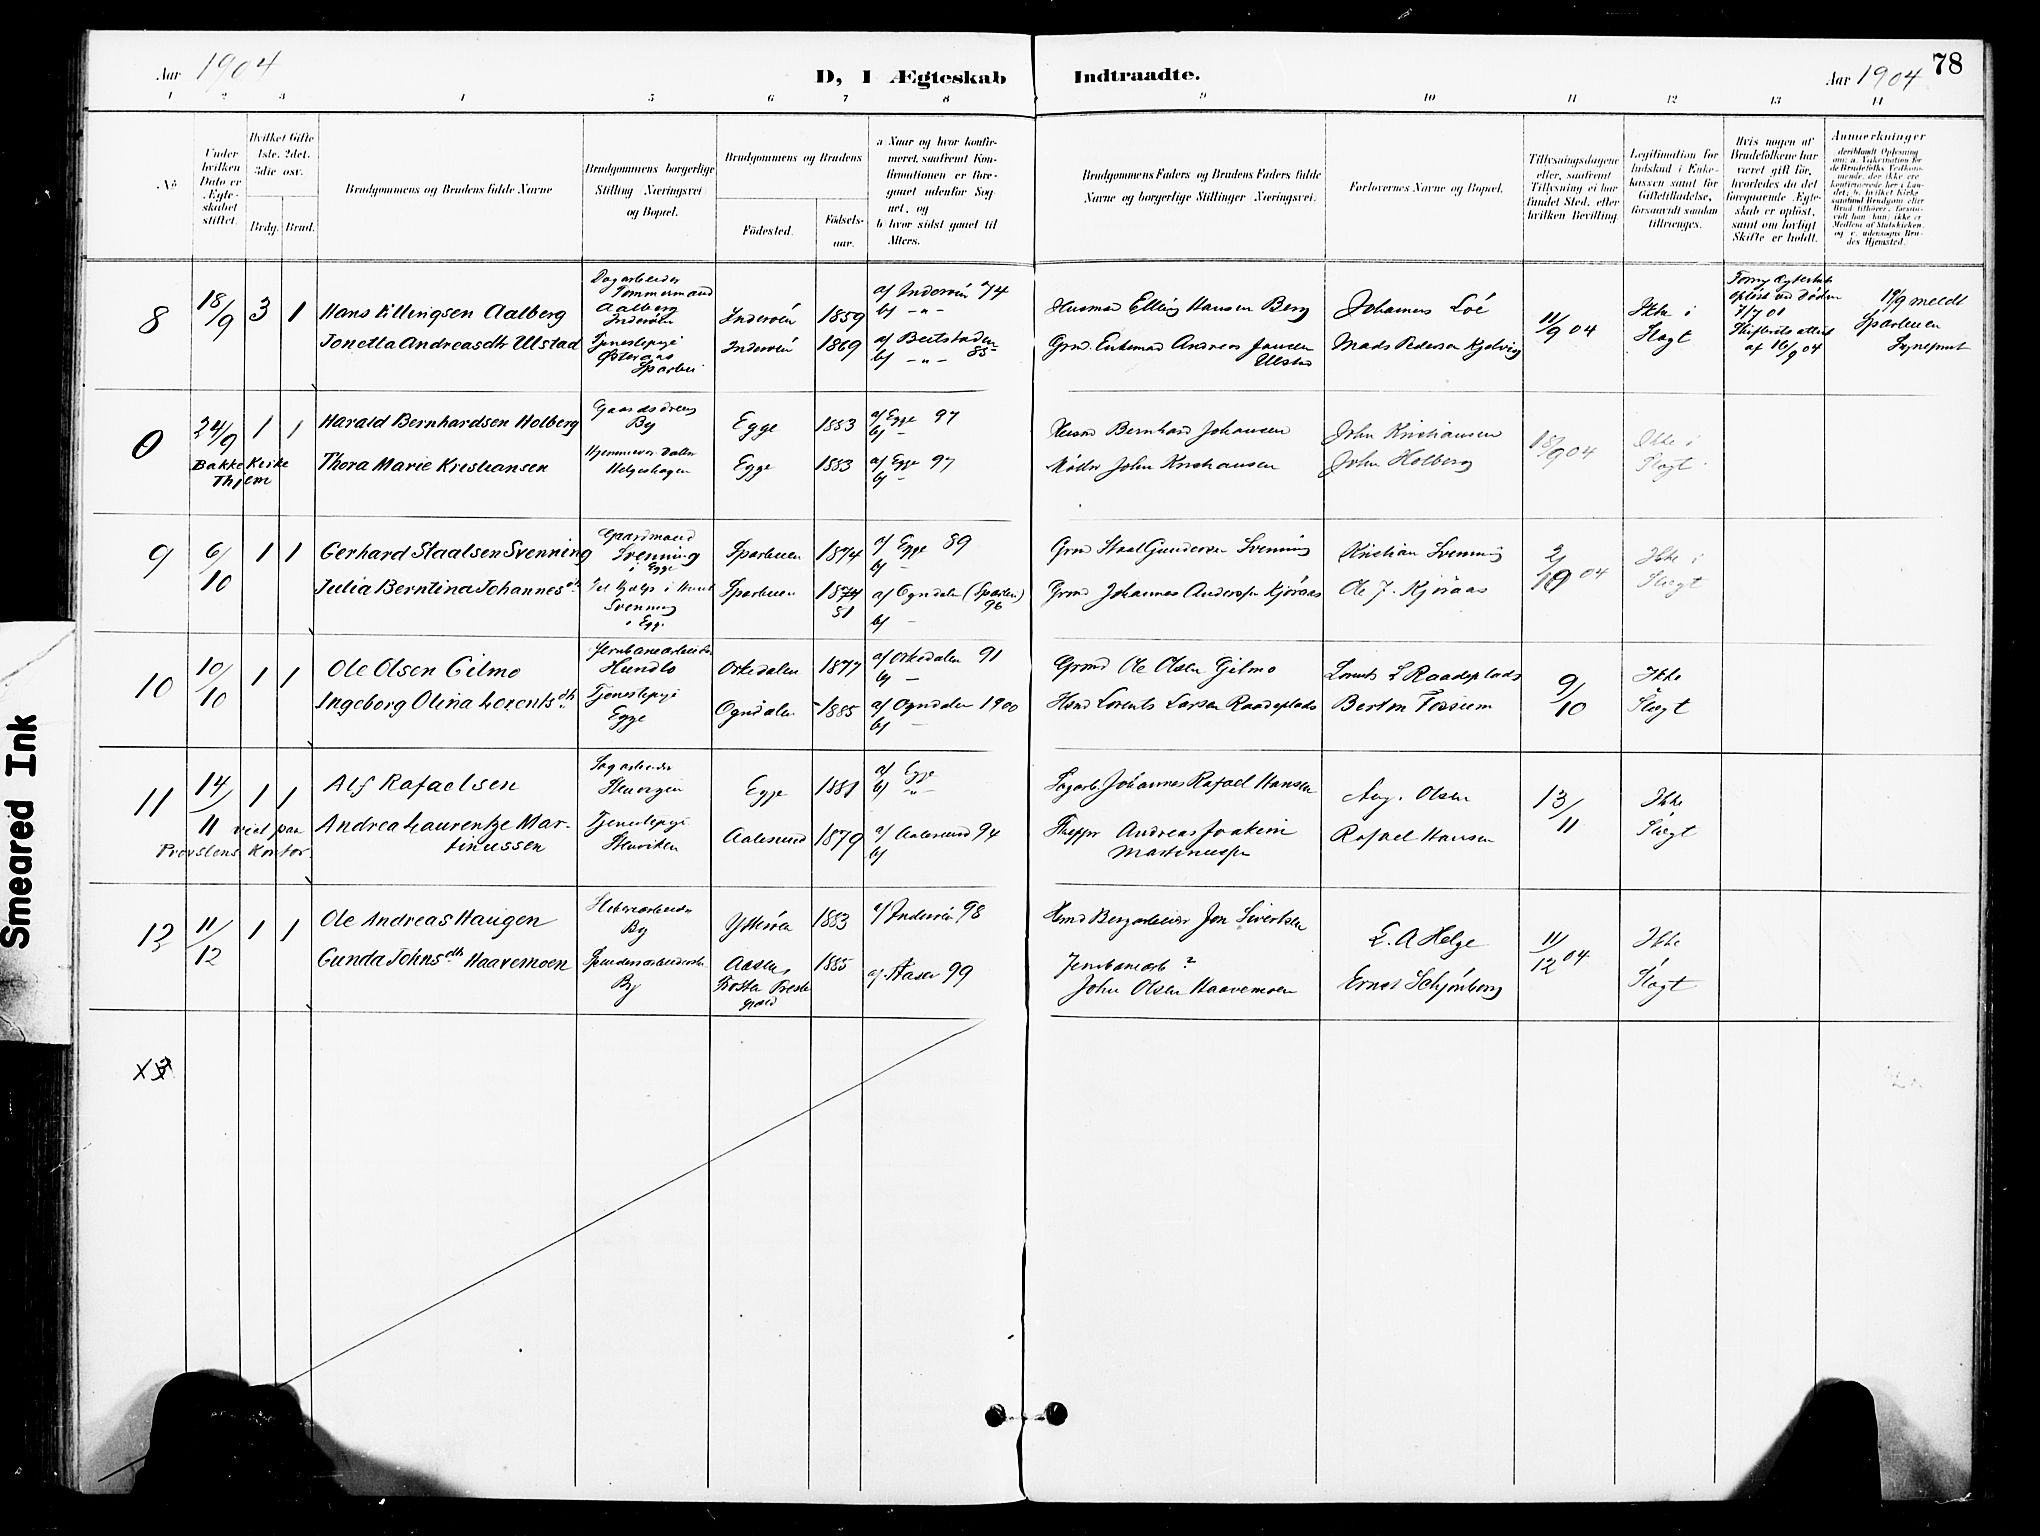 Smeared Ink
78
Aar 1904
D, I Ægteskab Indtraadte.
Aar 1904
1 2 3 4 5 6 7 8 9 10 11 12 13 14
No
Under hvilken Dato er Ægteskabet stiftet.
Hvilket Gifte 1ste. 2det. 3die osv.
Brdg. Brud.
Brudgommens og Brudens fulde Navne
Brudgommens borgerlige Stilling (Næringsvei) og Bopæl.
Brudgommens og Brudens
Födested.
Födselsaar.
a Naar og hvor konfirmeret, saafremt Konfirmationen er foregaaet udenfor Sognet, og
b hvor sidst gaaet til Alters.
Brudgommens Faders og Brudens Faders fulde Navne og borgerlige Stillinger (Næringsvei.
Forlovernes Navne og Bopæl.
Tillysningsdagene eller, saafremt Tillysning ei har fundet Sted, efter hvilken Bevilling.
Legitimation for Indskud i Enkekassen samt for Giftetilladelse, forsaavidt saadan tiltrænges.
Hvis nogen af Brudefolkene har været gift för, hvorledes da det foregaaende Ægteskab er oplöst, samt om lovligt Skifte er holdt.
Anmærkninger
8
18/9 3 1
Hans Ellingsen Aalberg
Dagarbeider Tømmermand Aalberg Inderøen
Inderöen 1859
a) Inderöen 74
b) -"-
Husmd Elling Hansen Berg
Johannes Loé
11/9 04
Ikke i Slægt
Forrige Ægteskab opløst ved Døden 7/7 01 Skifteretsattest af 16/9 04
19/9 meldt Sparbuen Sognepræst
Jonetta Andreasdtr Ulstad
Tjenestepige Østeraas Sparbu
Inderöen 1869
a) Beitstaden 85
b) -"-
Grmd Enkemand Andreas Jansen Ulstad
Mads Pederson Kjelvig
0
24/9 1 1
Bakke Kirke Thjem
Harald Bernhardsen Holberg
Gaardsdreng By
Egge 1883
a) Egge 97
b) -
Husmd Bernhard Johansen
John Kristiansen
18/9 04
Ikke i Slægt
Thora Marie Kristiansen
Hjemmev. Datter Helgeshagen
Egge 1883
a) Egge 97
b) -
Møller John Kristiansen
John Holberg
9
6/10 1 1
Gerhard Staalsen Svenning
Gaardmand Svenning i Egge
Sparbuen 1874
a) Egge 89
b) -
Grmd Staal Gundersen Svenning
Kristian Svenning
2/10 04
Ikke i Slægt
Julia Berntina Johannesdtr
Til Hjælp i Huset Svenning i Egge
Sparbuen 1874 81
a) Ogndalen (Sparbu) 96
b) -
Grmd Johannes Anderssen Kjöraas
Ole J. Kjöraas
10
10/10 1 1
Ole Olsen Gilmo
Jernbanearbeider Hundlo
Orkedalen 1877
a) Orkedalen 91
b) -
Grmd Ole Olsen Gjelmo
Lorents L Raadeplads
9/10
Ikke Slægt
Ingeborg Olina Lorentsdtr
Tjenestepige Egge
Ogndalen 1885
a) Ogndalen 1900
b) -
Hsmd Lorents Larsen Raadeplads
Berton Fossum
11
14/11 1 1
viet paa Provstens Kontor.
Alf Rafaelsen
Sagarbeider Stenvigen
Egge 1881
a) Egge
b) -"-
Sagarb. Johannes Rafael Hansen
Aug. Olsen
13/11
Ikke Slægt
Andrea Laurentze Martinussen
Tjenestepige Stenviken
Aalesund 1879
a) Aalesund 94
b)
Skipper Andreas Joakim Martinussen
Rafael Hansen
12
11/12 1 1
Ole Andreas Haugen
By
Ytterøen 1883
a) Inderöen 98
Hsmd Bergarbeider Jon Sivertsen
L. A Helge
11/12 04
Ikke Slægt
Gunda Johnsdtr Haavemoen
By
Aasen, Frosta Prestegjeld 1885
a) Aasen 99
Jernbanearb ?
John Olsen Haavemoen
Ernst Schjönborg